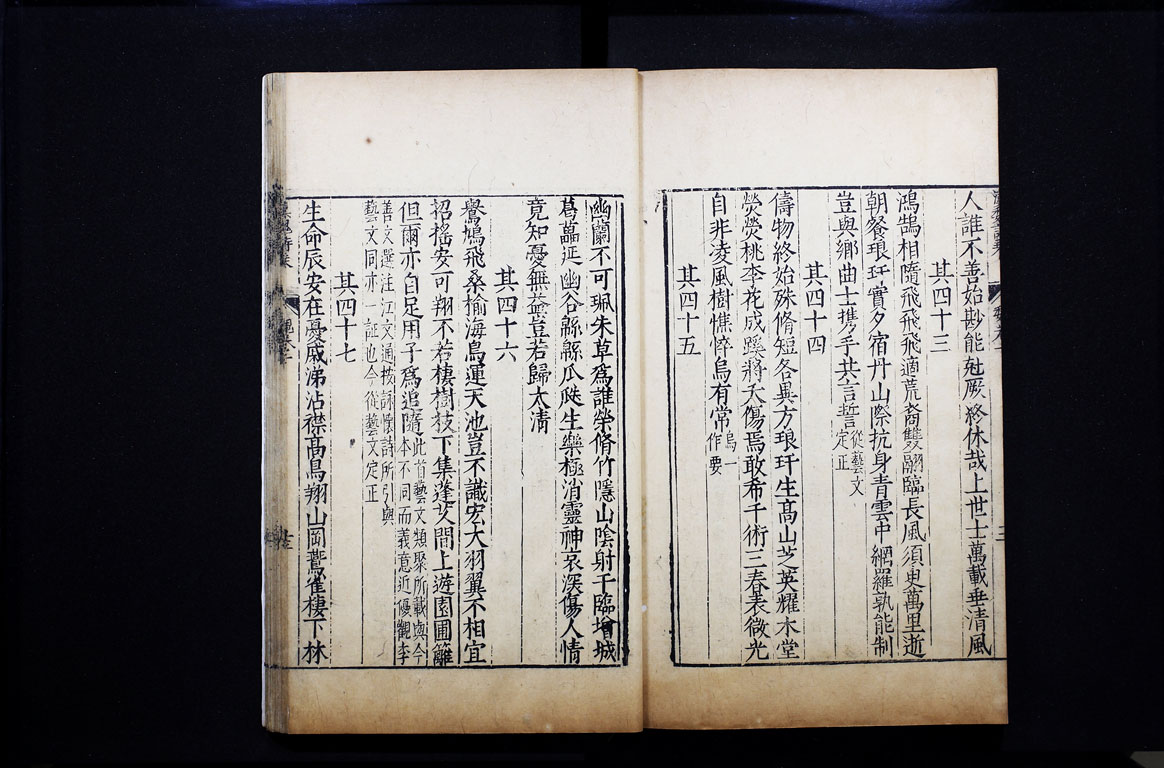 人誰不善始尠能尅厥終休哉上世士萬載垂清風
其四十三
鴻鵠相隨飛飛飛適荒裔雙翮臨長風須臾萬里逝
朝餐琅玕實夕宿丹山際抗身青雲中網羅孰能制
豈與鄉曲士携手共言誓從藝文定正
其四十四
儔物終始殊脩短各異方琅玕生髙山芝英耀木堂
熒熒桃李花成蹊將夭傷焉敢希千術三春表微光
自非凌風樹憔悴烏有常烏一作要
其四十五
幽蘭不可珮朱草爲誰榮脩竹隱山陰射干臨增城
葛藟延幽谷緜緜瓜瓞生樂極消靈神哀深傷人情
竟知憂無益豈若歸太清
其四十六
鷽鳩飛桑榆海鳥運天池豈不識宏大羽翼不相宜
招揺安可翔不若棲樹枝下集蓬艾間上遊園圃籬
但爾亦自足用子爲追隨此首藝文類聚所載與今
本不同而義意近優觀李
善文選注江文通擬詠懷詩所引與
藝文同亦一証也今從藝文定正
其四十七
生命辰安在憂戚涕沾襟髙鳥翔山岡鷰雀棲下林